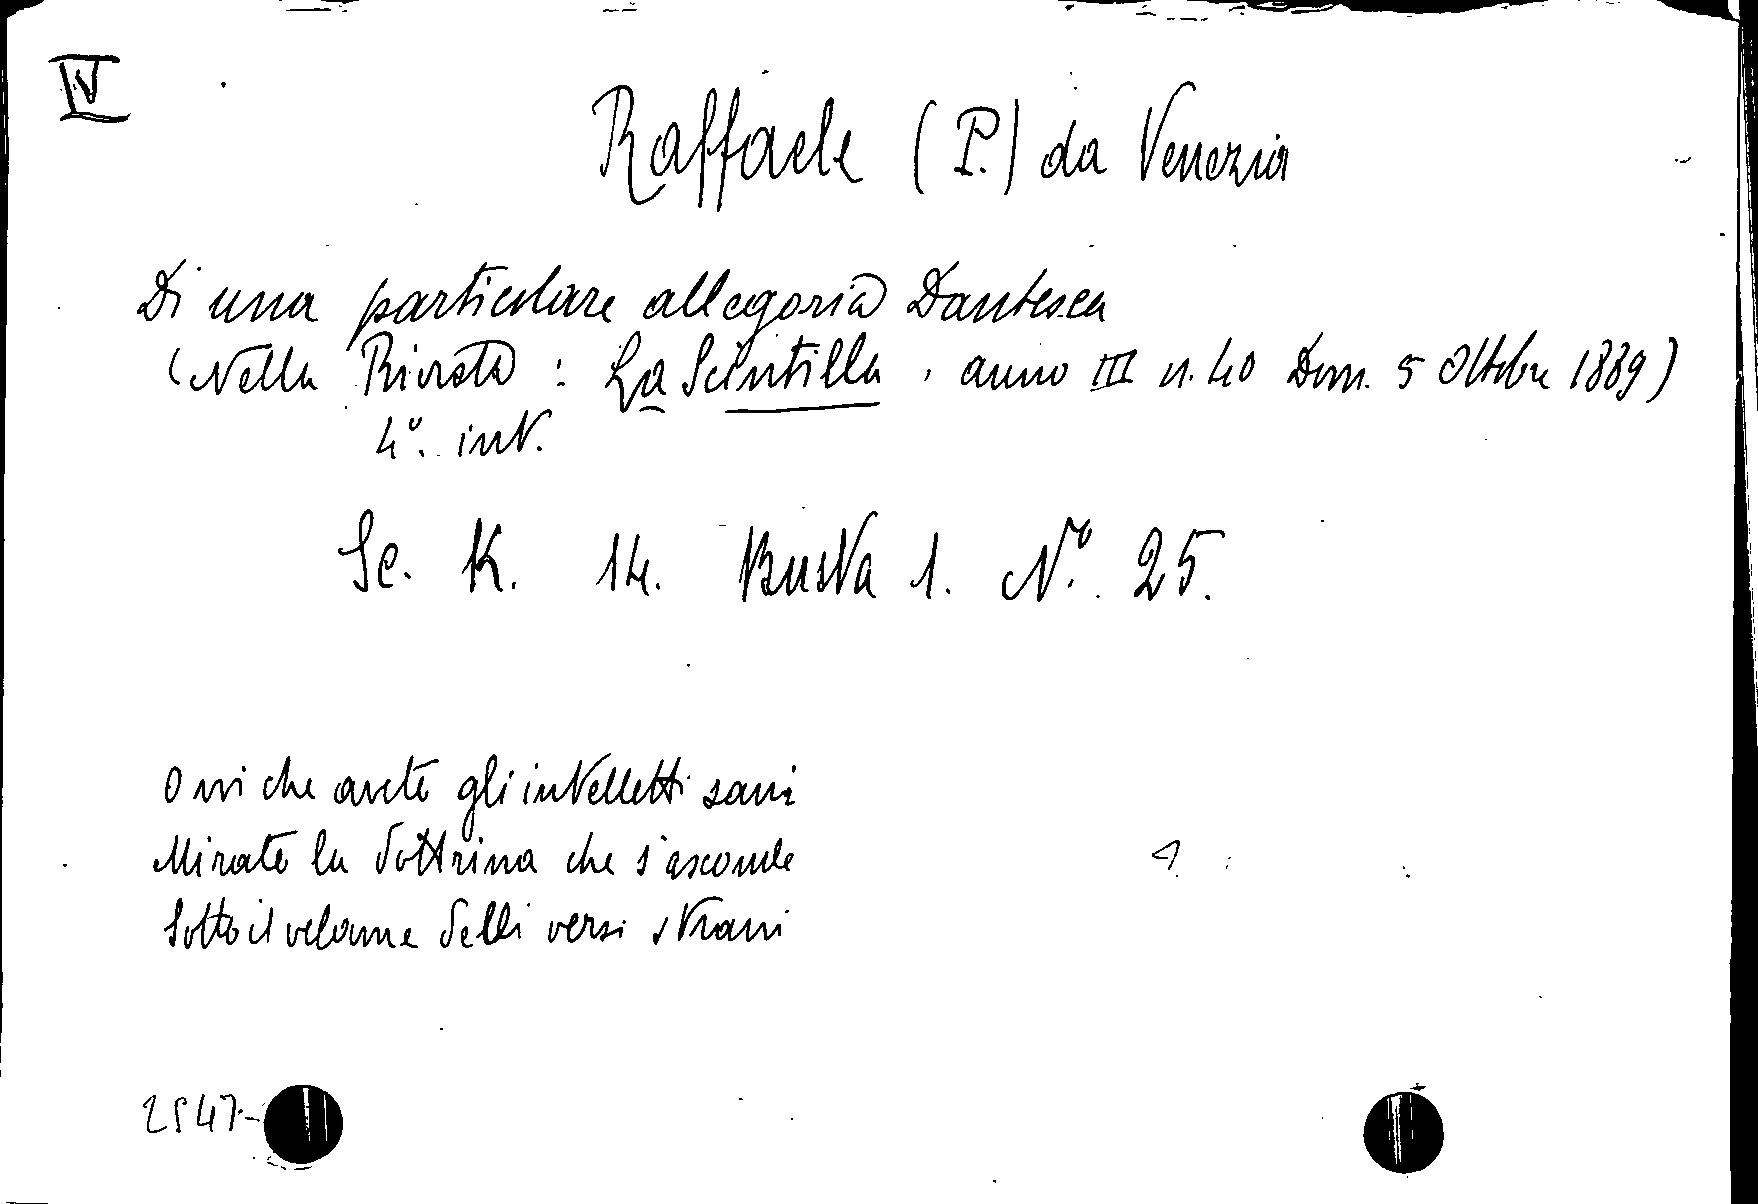 IV
Raffaele (P.) da Venezia
Di una particolare allegoria Dantesca
(Nella Rivista: La Scintilla, anno III n. 40 Dom. 5 Ottobre 1889)
4°. int.
Sc. K. 14. Busta 1. N°. 25.
O voi che avete gli intelletti sani
Mirate la dottrina che s'asconde
Sotto il velame delli versi strani
2547-